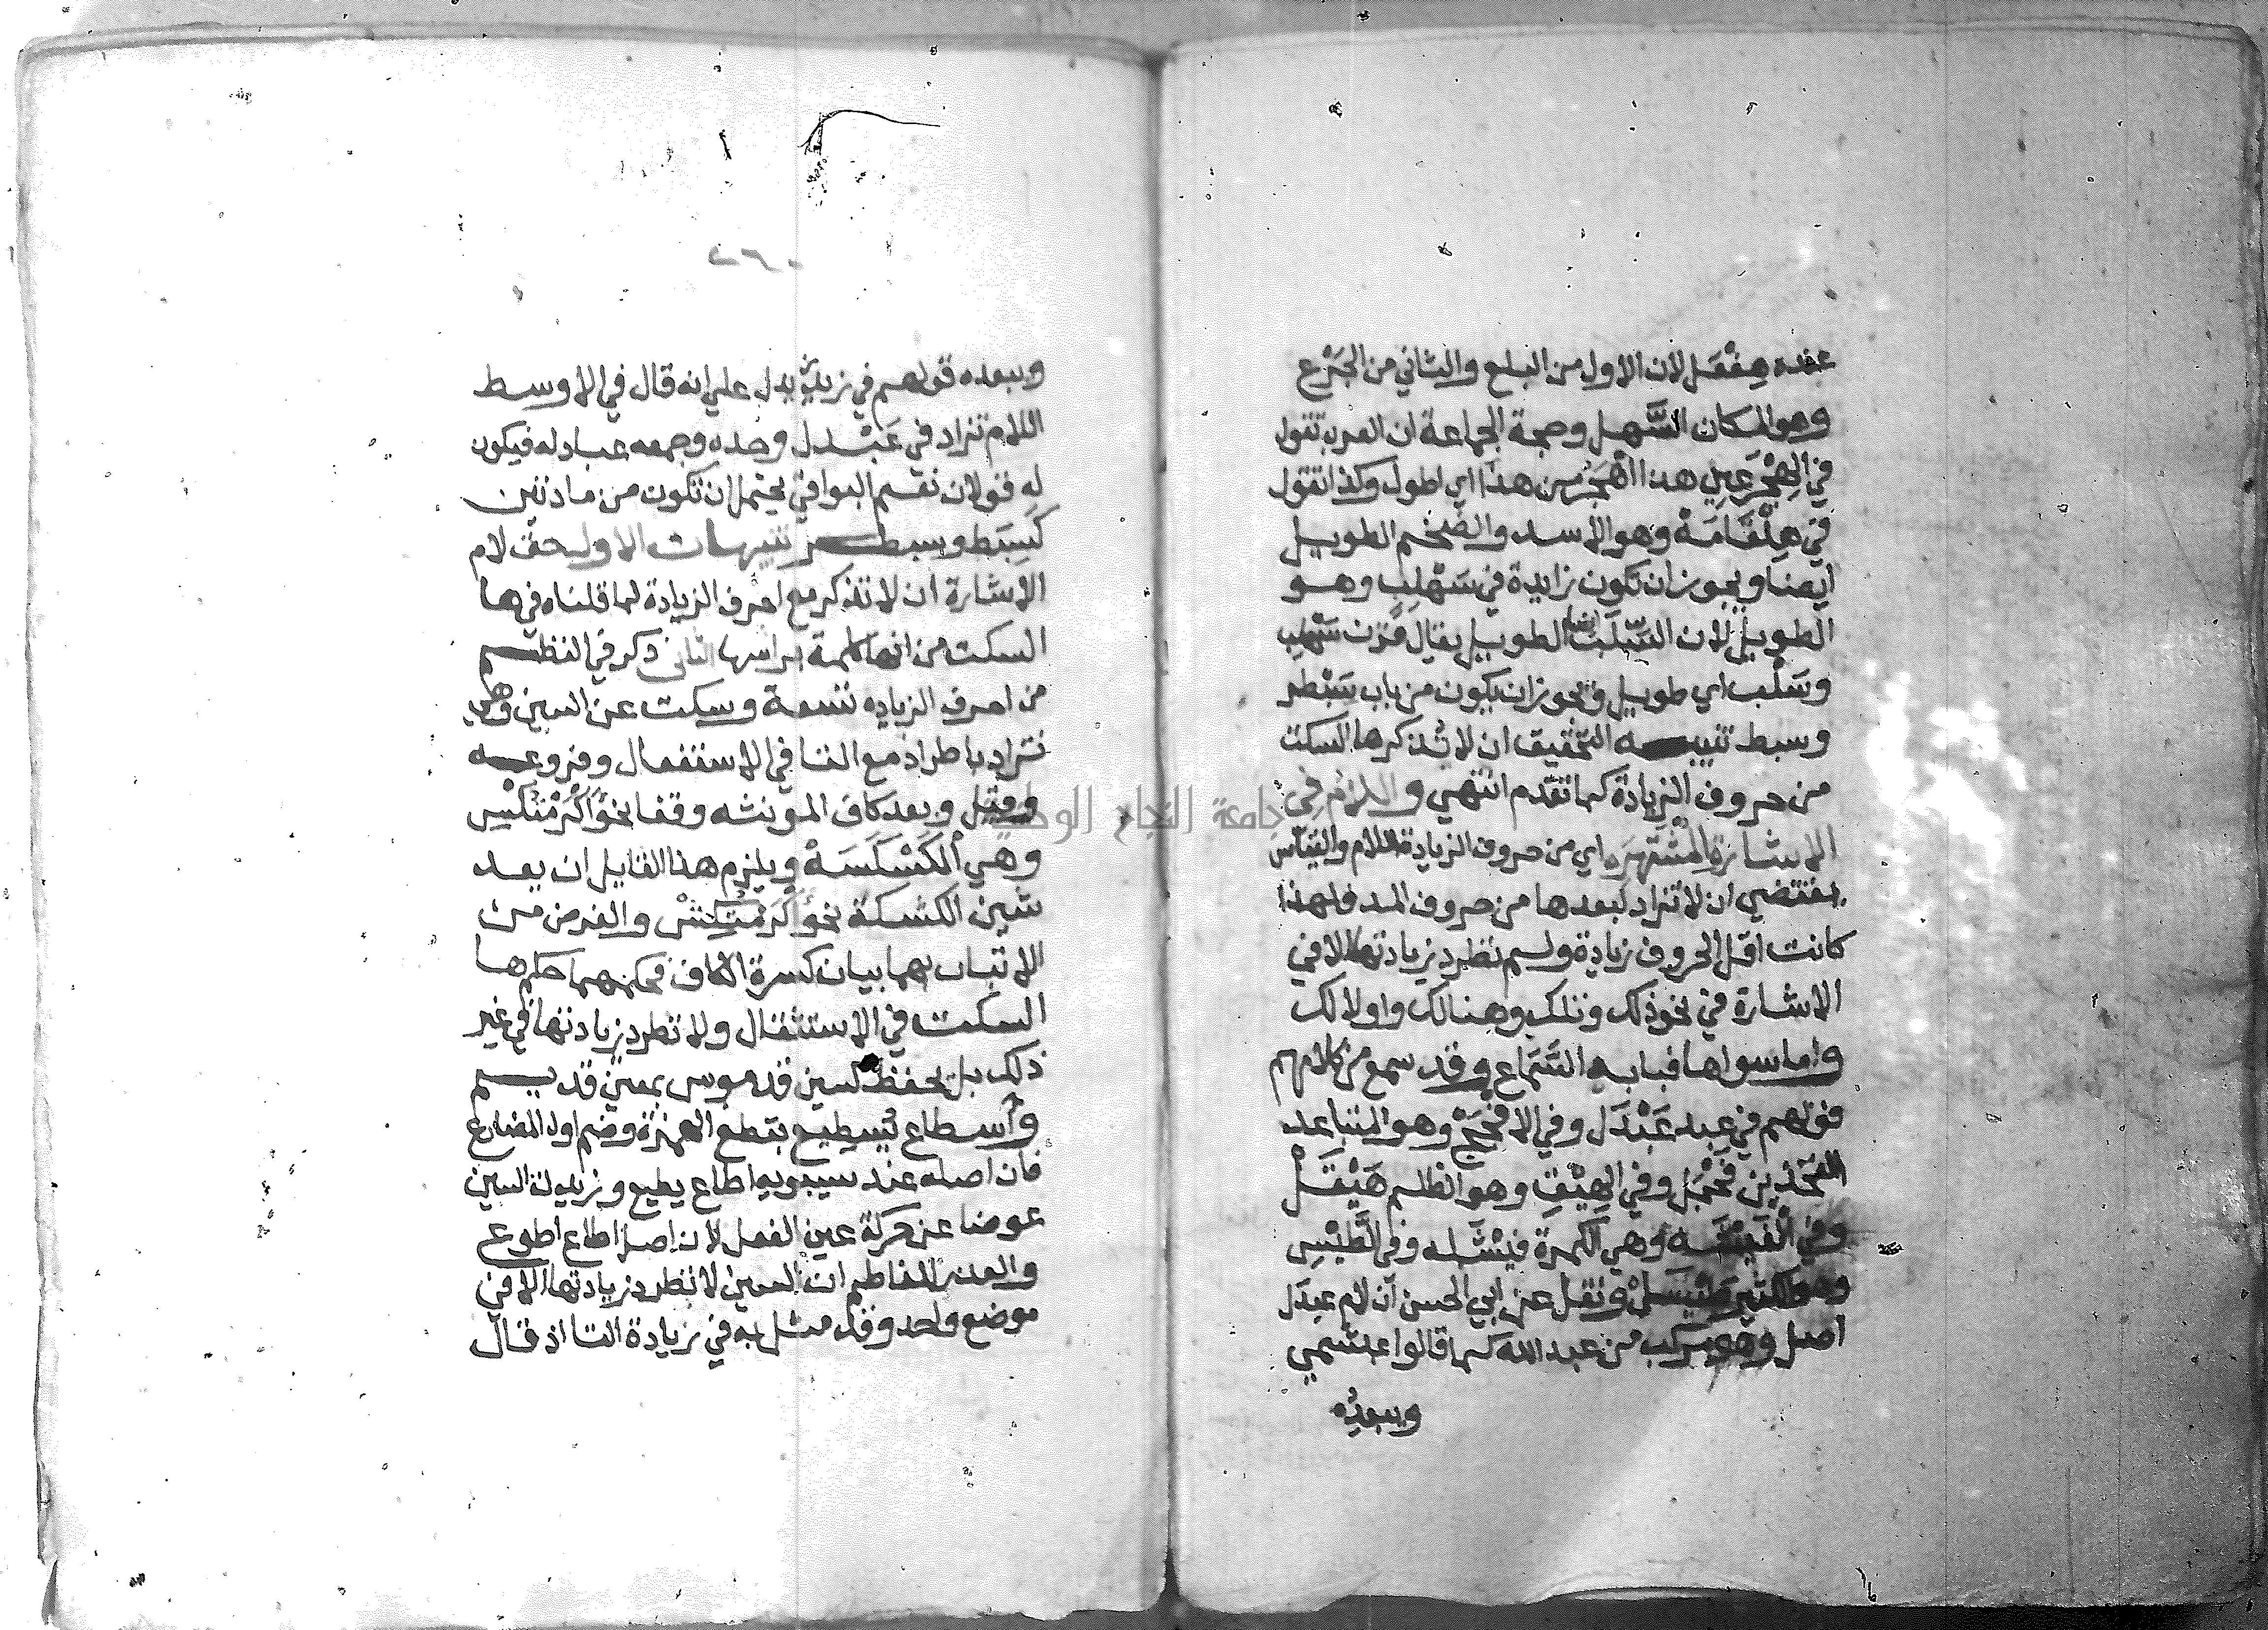 عنده هفعل لان الاول من البلع والثاني من الجَرَع
وهو المكان السَّهل وحجة الجماعة ان العرب تقول
في الهِجْرَعِ هذا اهْجَرُ من هذا اي اطول وكذا تقول
في هِلْقَامَة وهو الاسد والضخم الطويل
ايضا ويجوز ان تكون زايدة في سَهْلِب وهو
الطويل لان السَّلَب ايضا الطويل يقال قرن سَهْلب
وسَلْب اي طويل ويجوز ان يكون من باب سَبْطر
وسبط تنبيه التحقيق ان لا تذكرها السكت
من حروف الزيادة كما تقدم انتهي واللام في
الاشارة المشتهره اي من حروف الزيادة اللام والقياس
يقتضي ان لا تزاد لبعدها من حروف المد فلهذا
كانت اقل الحروف زيادة ولم تطرد زيادتها الا في
الاشارة في نحو ذلك وتلك وهنالك واولالك
واما سواها فبابه السَّمَاع وقد سمع من كلامهم
قولهم في عبد عَبْدَل وفي الافْحَج وهو المتباعد
الفخذين فَحْجَل وفي الهَيْقِ وهو الظلم هَيْقَل
وفي الفَيْشَه وهي الكمرة فيْشَله وفي الطَّيْسِ
وهو الكثير طَيْسَلْ ونقل عن ابي الحسن ان لام عبدَل
اصل وهو مركب من عبد الله كما قالوا عبشمي
ويبعده
٢٦٠
ويبعده قولهم في زيد زيدل علي انه قال في الاوسط
اللام تزاد في عَبْدل وحده وجمعه عبادله فيكون
له قولان نعم البواقي يحتمل ان تكون من مادتين
كَسِبَط وسبطر تنبيهات الاول حق لام
الاشارة ان لا تذكر مع احرف الزيادة لما قلناه في ها
السكت من انها كلمة براسها الثاني ذكر في النظم
من احرف الزياده تسعة وسكت عن السين وهي
تزاد باطراد مع التا في الاستفعال وفروعه
وقيل وبعد كاف المونثه وقفا نحو اكْرَمْتُكِسْ
وهي الكَسْكَسَة ويلزم هذا القايل ان يعد
شين الكشكشة نحو اكْرَمْتُكِشْ والغرض من
الاتيان بهما بيان كسرة الكاف فحكمهما حكم ها
السكت في الاستقلال ولا تطرد زيادتها في غير
ذلك بل تحفظ كسين قدموس بمعني قديم
وأسطاع يُسطيع بقطع الهمزة وضم اول المضارع
فان اصله عند سيبويه اطاع يطيع وزيدت السين
عوضا عن حركة عين الفعل لان اصل اطاع اطوع
والعذر للناظم ان السين لا تطرد زيادتها الا في
موضع واحد وقد مثل به في زيادة التا اذ قال
جامعة النجاح الوطنية